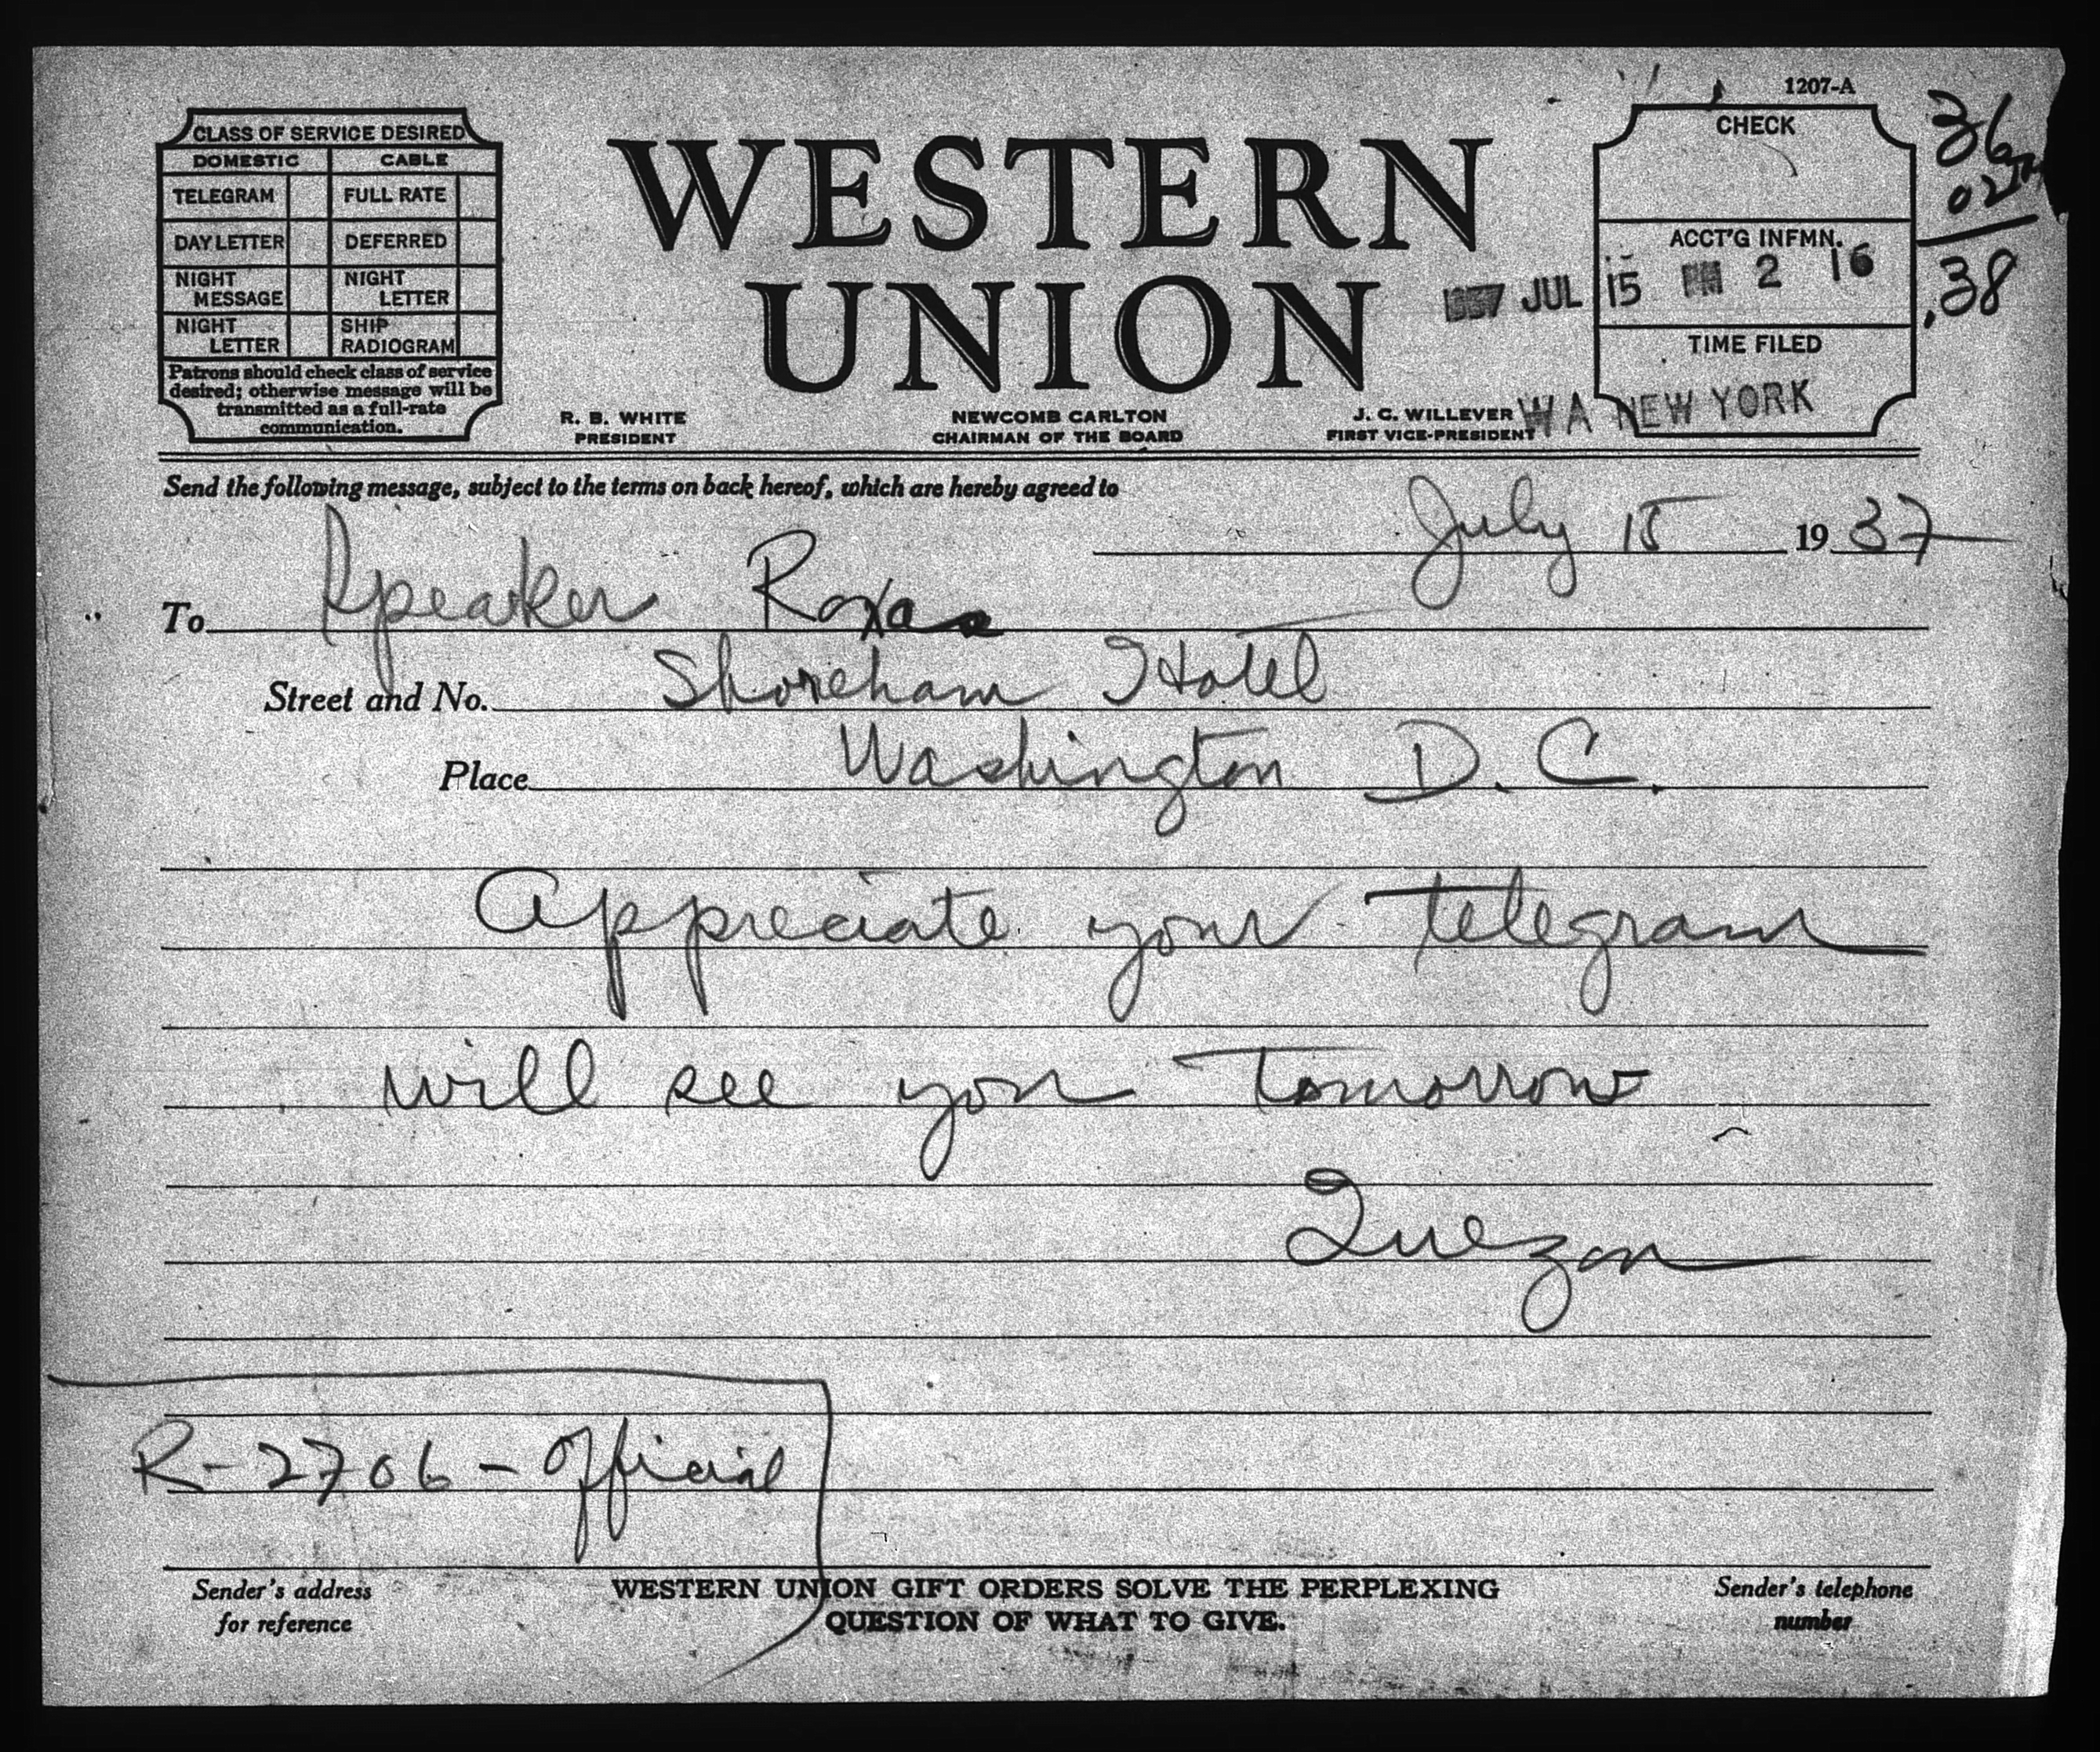 1207-A
CLASS OF SERVICE DESIRED
DOMESTIC CABLE
TELEGRAM FULL RATE
DAY LETTER DEFERRED
NIGHT MESSAGE NIGHT LETTER
NIGHT LETTER SHIP RADIOGRAM
Patrons should check class of service
desired; otherwise message will be
transmitted as a full-rate
communication.
WESTERN
UNION
R. B. WHITE
PRESIDENT
NEWCOMB CARLTON
CHAIRMAN OF THE BOARD
J. C. WILLEVER
FIRST VICE-PRESIDENT
CHECK
ACCT'G INFMN.
JUL 15 PM 2 16
TIME FILED
WA NEW YORK
36
02
.38
Send the following message, subject to the terms on back hereof, which are hereby agreed to
July 15 1937
To Speaker Roxas
Street and No. Shoreham Hotel
Place Washington D.C.
Appreciate your telegram
will see you tomorrow
Quezon
R-2706-Official
Sender's address
for reference
WESTERN UNION GIFT ORDERS SOLVE THE PERPLEXING
QUESTION OF WHAT TO GIVE.
Sender's telephone
number